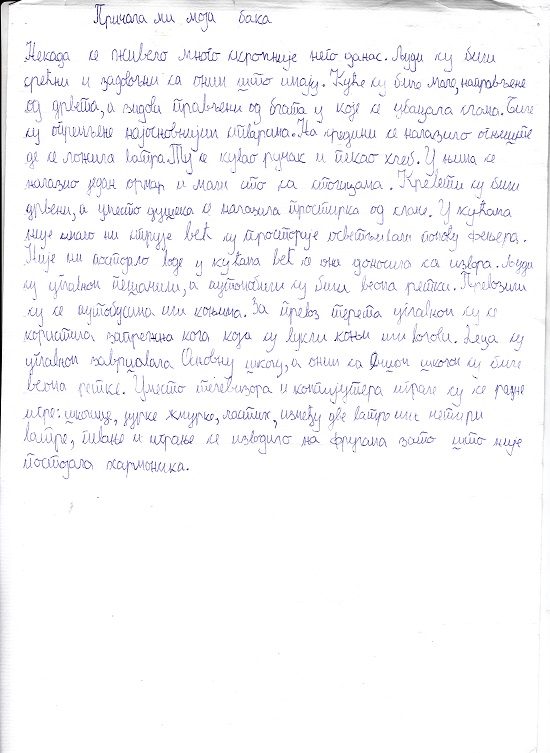 Причала ми моја бака
Некада се живело много скромније него данас. Људи су били
срећни и задовољни са оним што имају. Куће су биле мале, направљене
од дрвета, а зидови прављени од блата у које се убацала слама. Биле
су опремљене најосновнијим стварима. На средини се налазило огњиште
де се ложила ватра. Ту се кувао ручак и пекао хлеб. У њима се
налазио један орман и мали сто са столицама. Кревети су били
дрвени, а уместо душека се налазила простирка од сламе. У кућама
није имало ни струје већ су просторије осветљавали помоћу фењера.
Није ни постојало воде у кућама већ се она доносила са извора. Људи
су углавном пешачили, а аутомобили су били веома ретки. Превозили
су се аутобусима или коњима. За превоз терета углавном су се
користила запрежна кола која су вукли коњи или волови. Деца су
углавном завршавала Основну школу, а они са вишом школом су биле
веома ретке. Уместо телевизора и компјутера играле су се разне
игре: школице, јурке жмурке, ластиш, између две ватре или четири
ватре, певање и играње се изводило на фрулама зато што није
постојала хармоника.